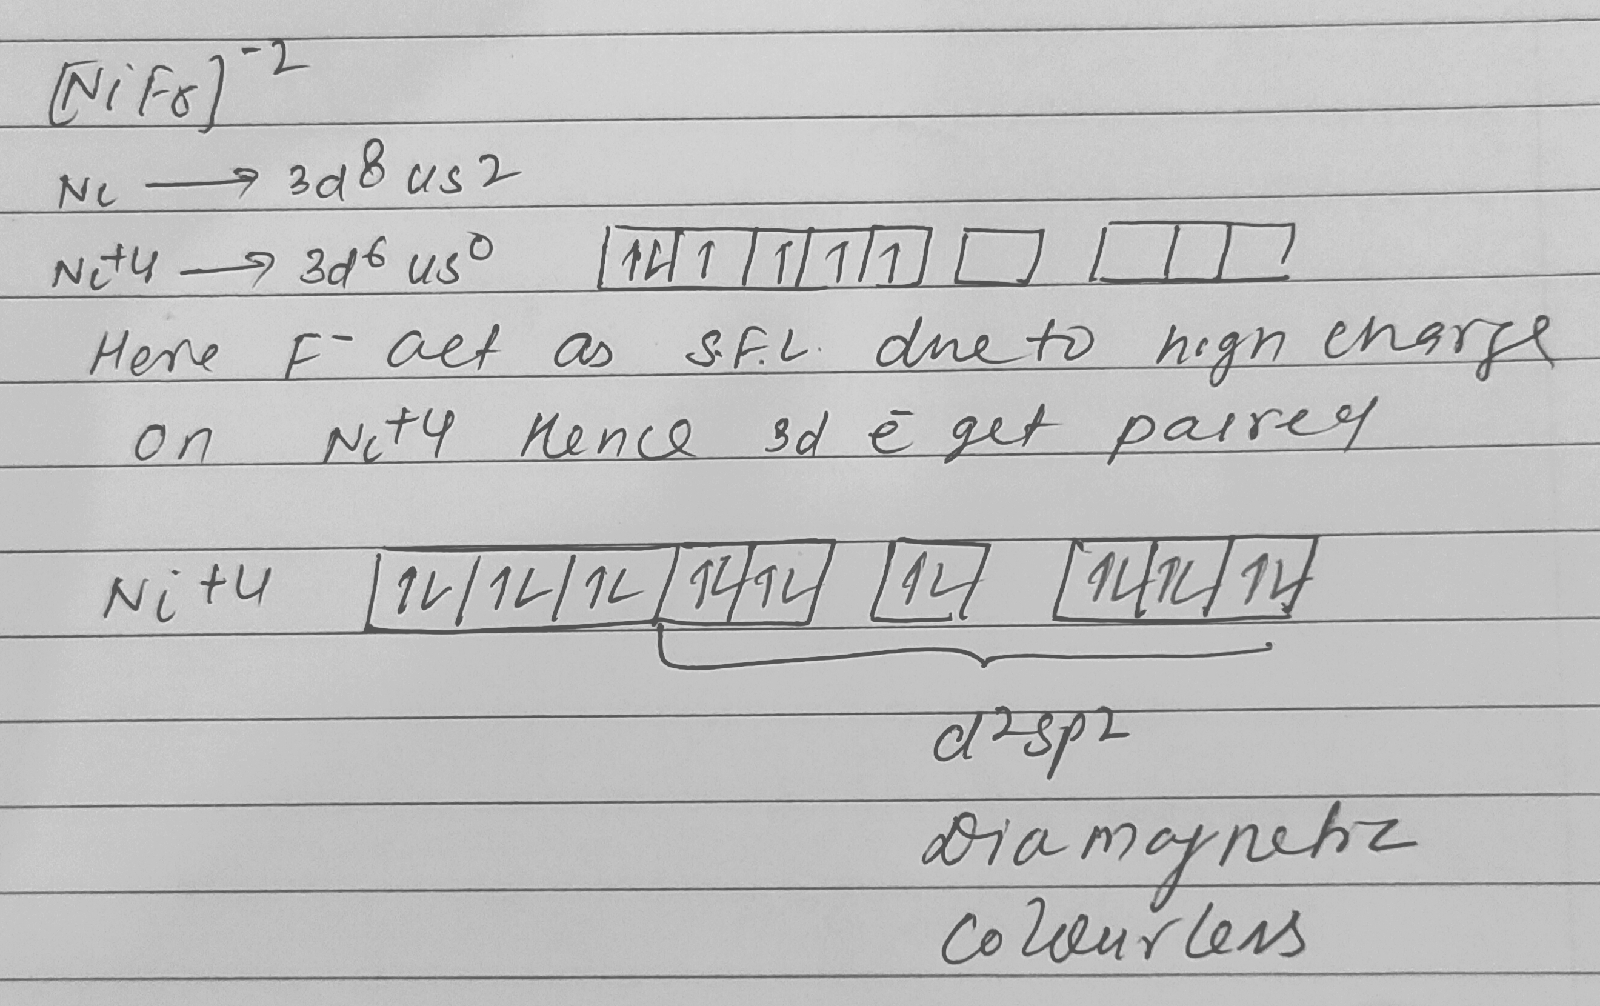 [NiF6]-2
Ni → 3d8 4s2
Ni+4 → 3d6 4s0 1L 1 1 1 1
Here F- act as S.F.L. due to high charge
on Ni+4 Hence 3d ē get paired
Ni+4 1L 1L 1L 1L 1L 1L 1L 1L 1L
d2sp2
Diamagnetic
Colourless